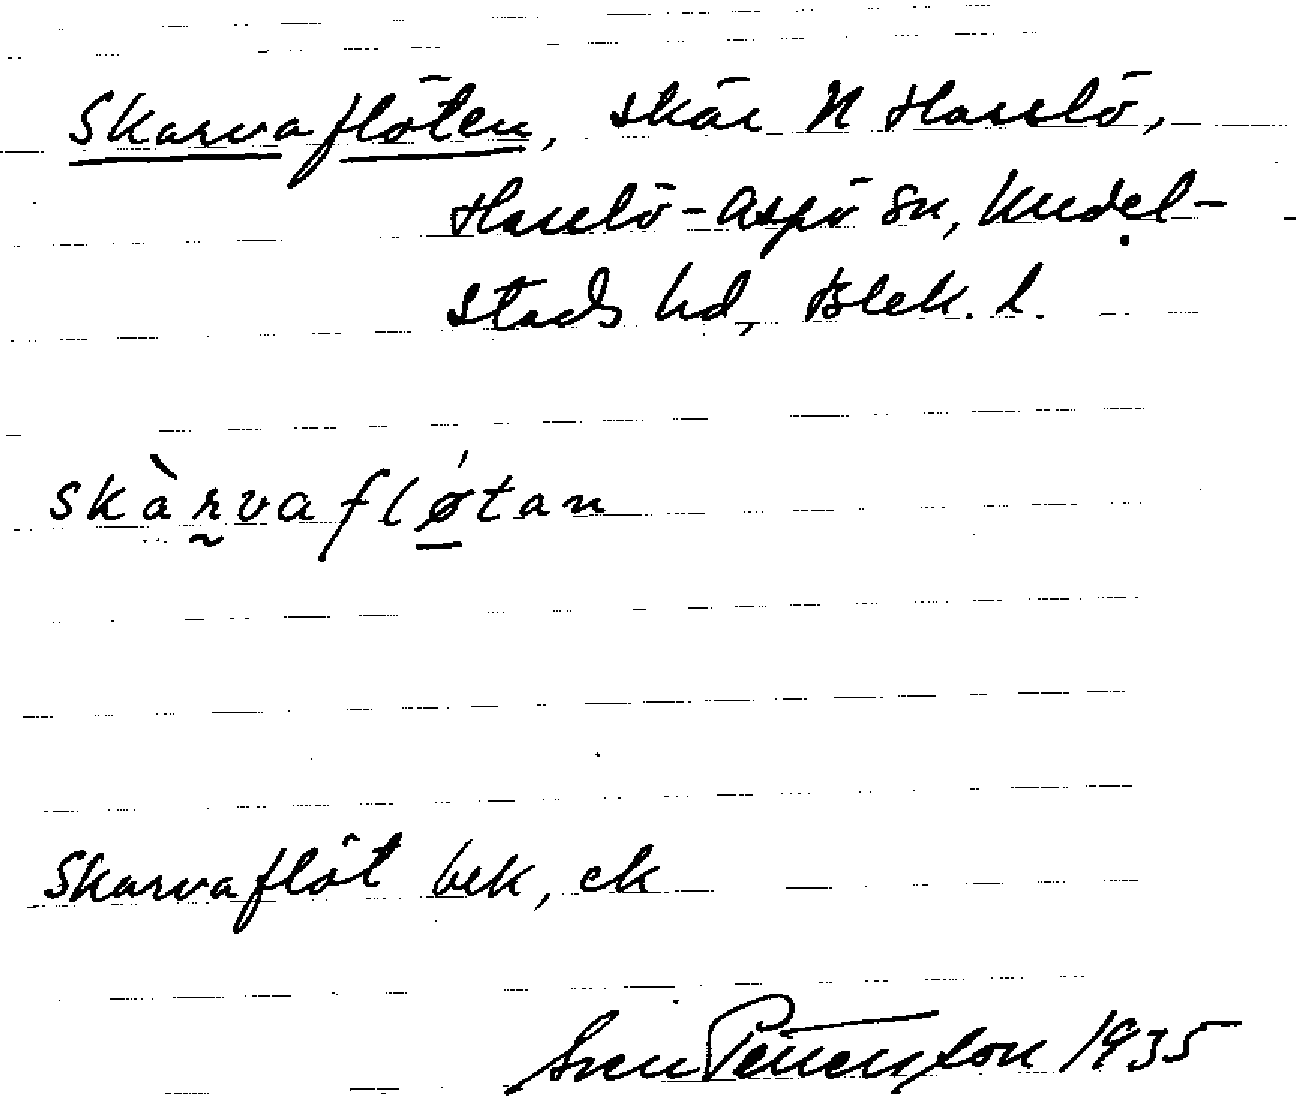 Skarvaflöten, skär N Hasslö,
Hasslö-Aspö sn, Medel-
stads hd, Blek. l.
skàrvafløtan
Skarvaflöt bek, ek
Sven Pettersson 1935